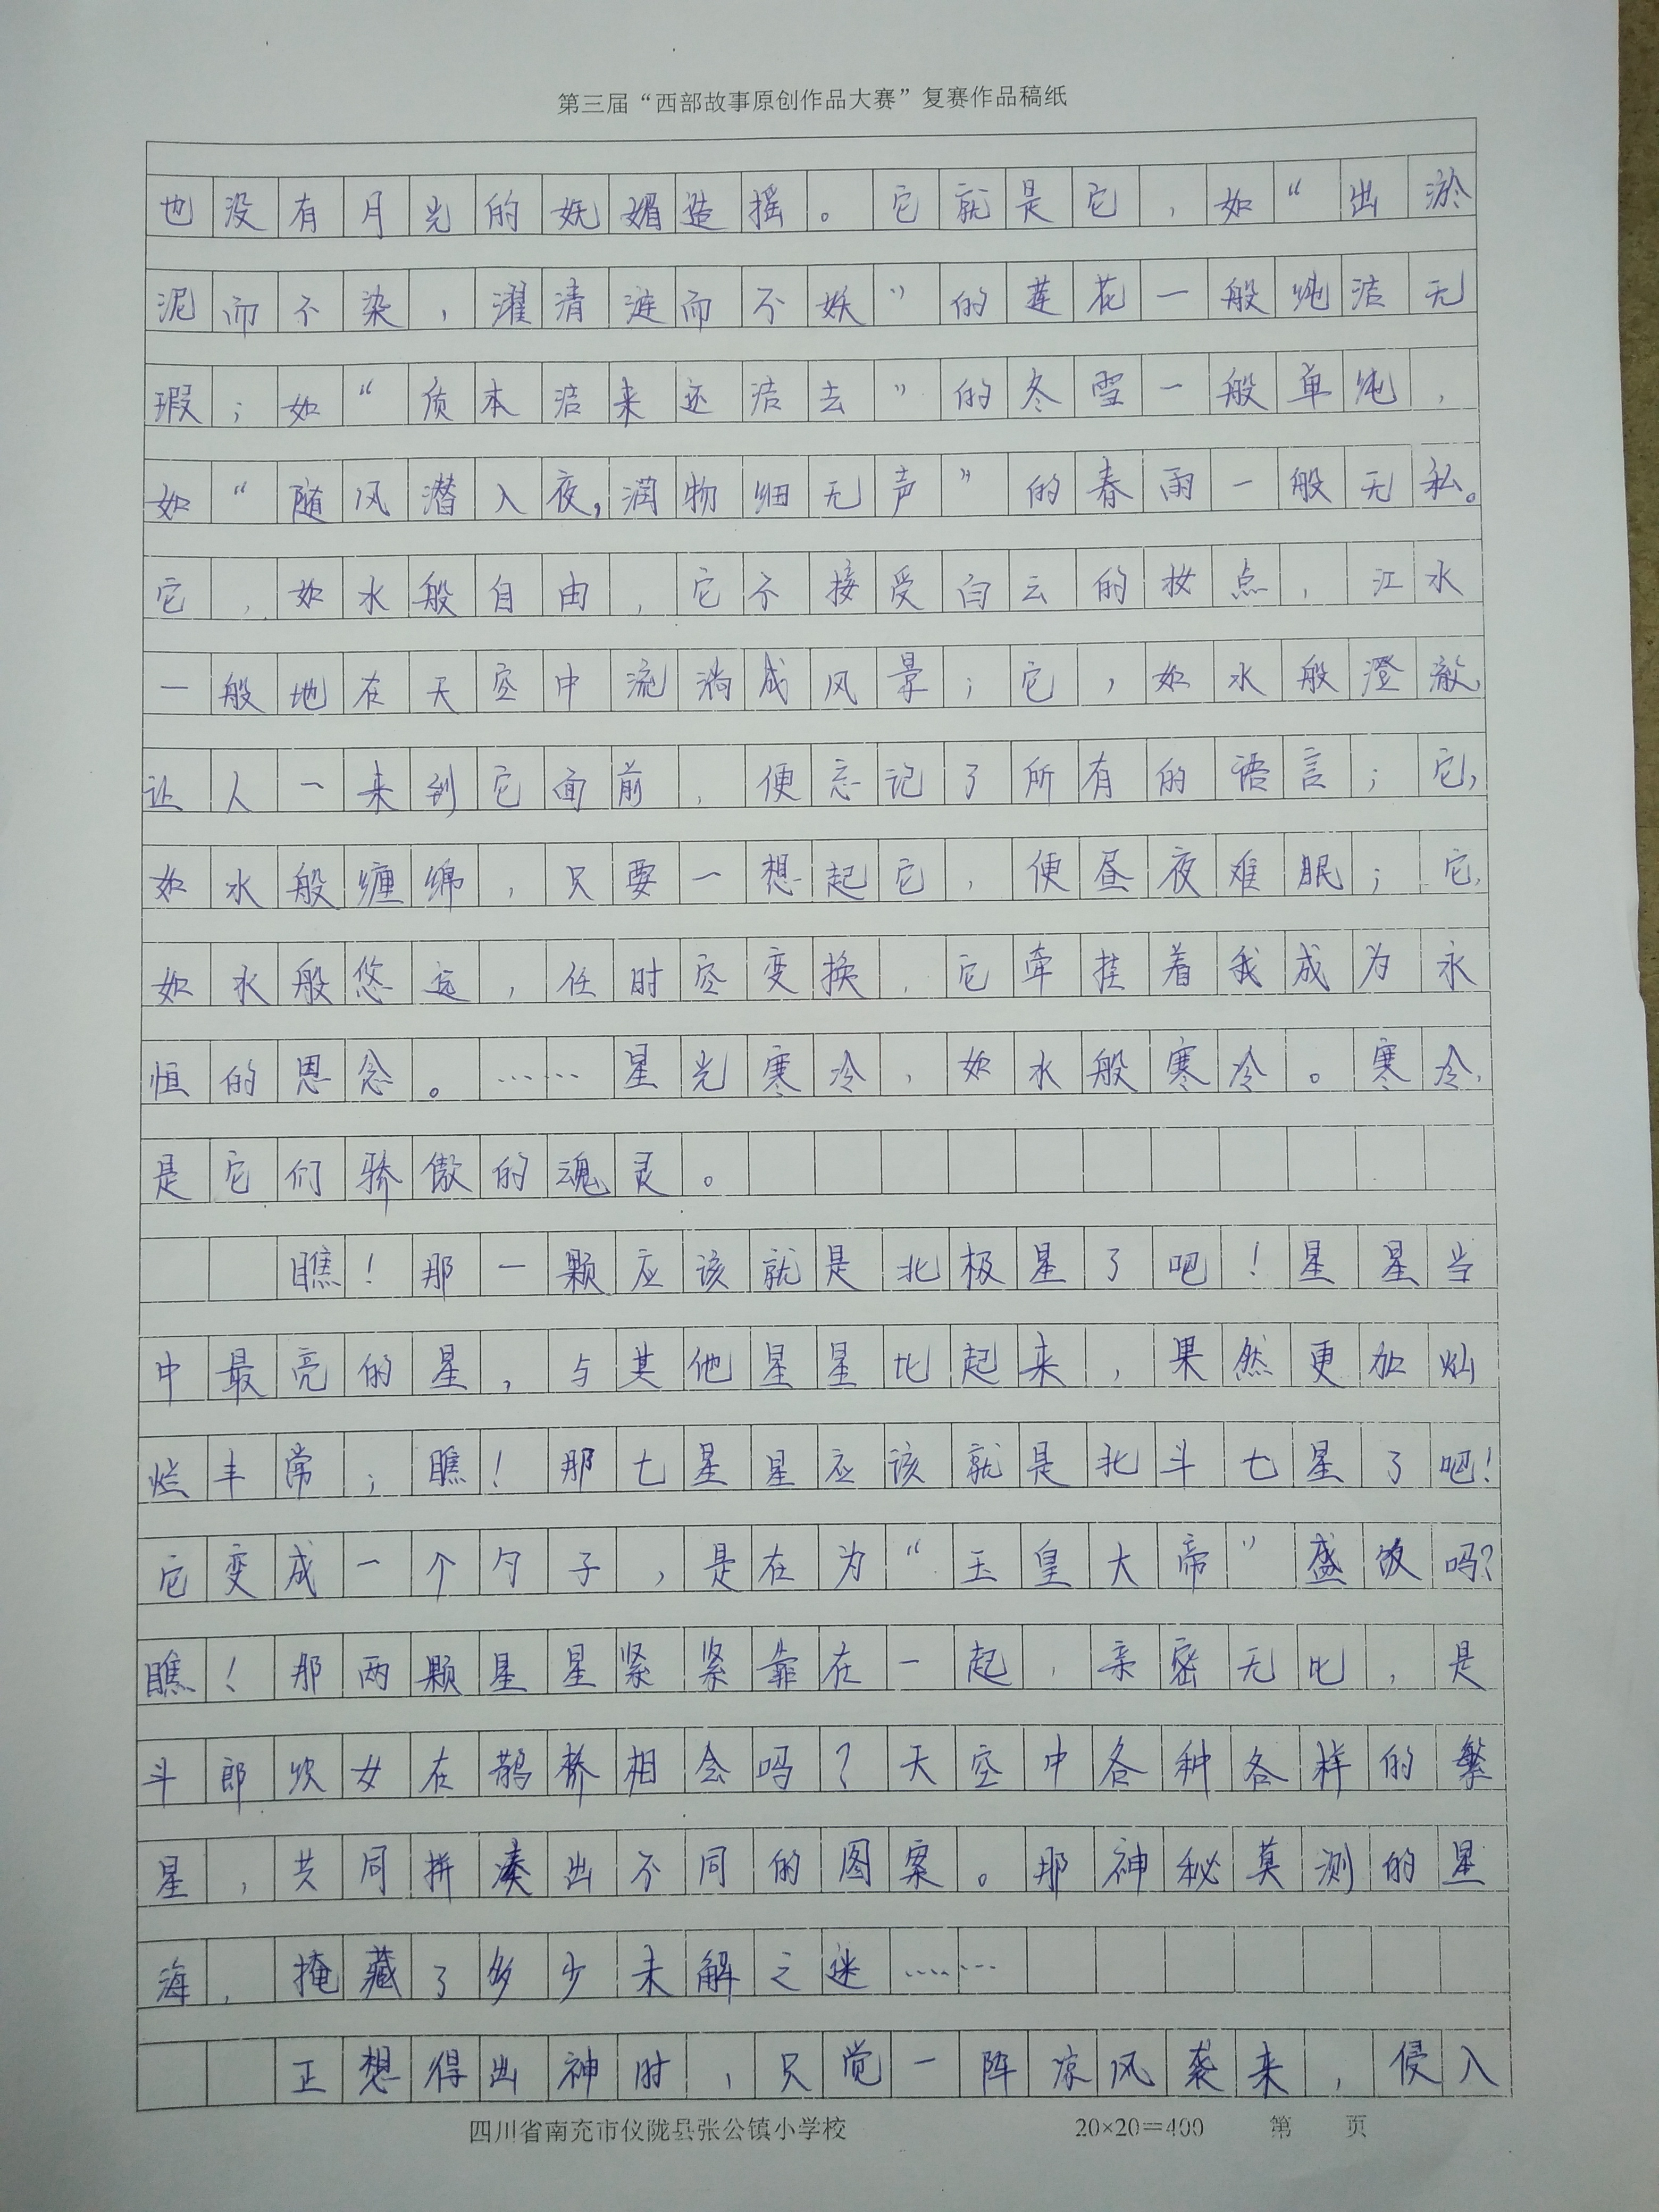 第三届“西部故事原创作品大赛”复赛作品稿纸
也没有月光的妩媚逍摇。它就是它，如“出淤
泥而不染，濯清涟而不妖”的莲花一般纯洁无
瑕；如“质本洁来还洁去”的冬雪一般单纯，
如“随风潜入夜，润物细无声”的春雨一般无私。
它，如水般自由，它不接受白云的妆点，江水
一般地在天空中流淌成风景；它，如水般澄澈，
让人一来到它面前，便忘记了所有的语言；它，
如水般缠绵，只要一想起它，便昼夜难眠；它，
如水般悠远，任时空变换，它牵挂着我成为永
恒的思念。……星光寒冷，如水般寒冷。寒冷，
是它们骄傲的魂灵。
瞧！那一颗应该就是北极星了吧！星星当
中最亮的星，与其他星星比起来，果然更加灿
烂丰常；瞧！那七星星应该就是北斗七星了吧！
它变成一个勺子，是在为“玉皇大帝”盛饭吗？
瞧！那两颗星星紧紧靠在一起，亲密无比，是
斗郎炊女在鹊桥相会吗？天空中各种各样的繁
星，共同拼凑出不同的图案。那神秘莫测的星
海，掩藏了多少未解之迷……
正想得出神时，只觉一阵凉风袭来，侵入
四川省南充市仪陇县张公镇小学校 20×20=400 第 页